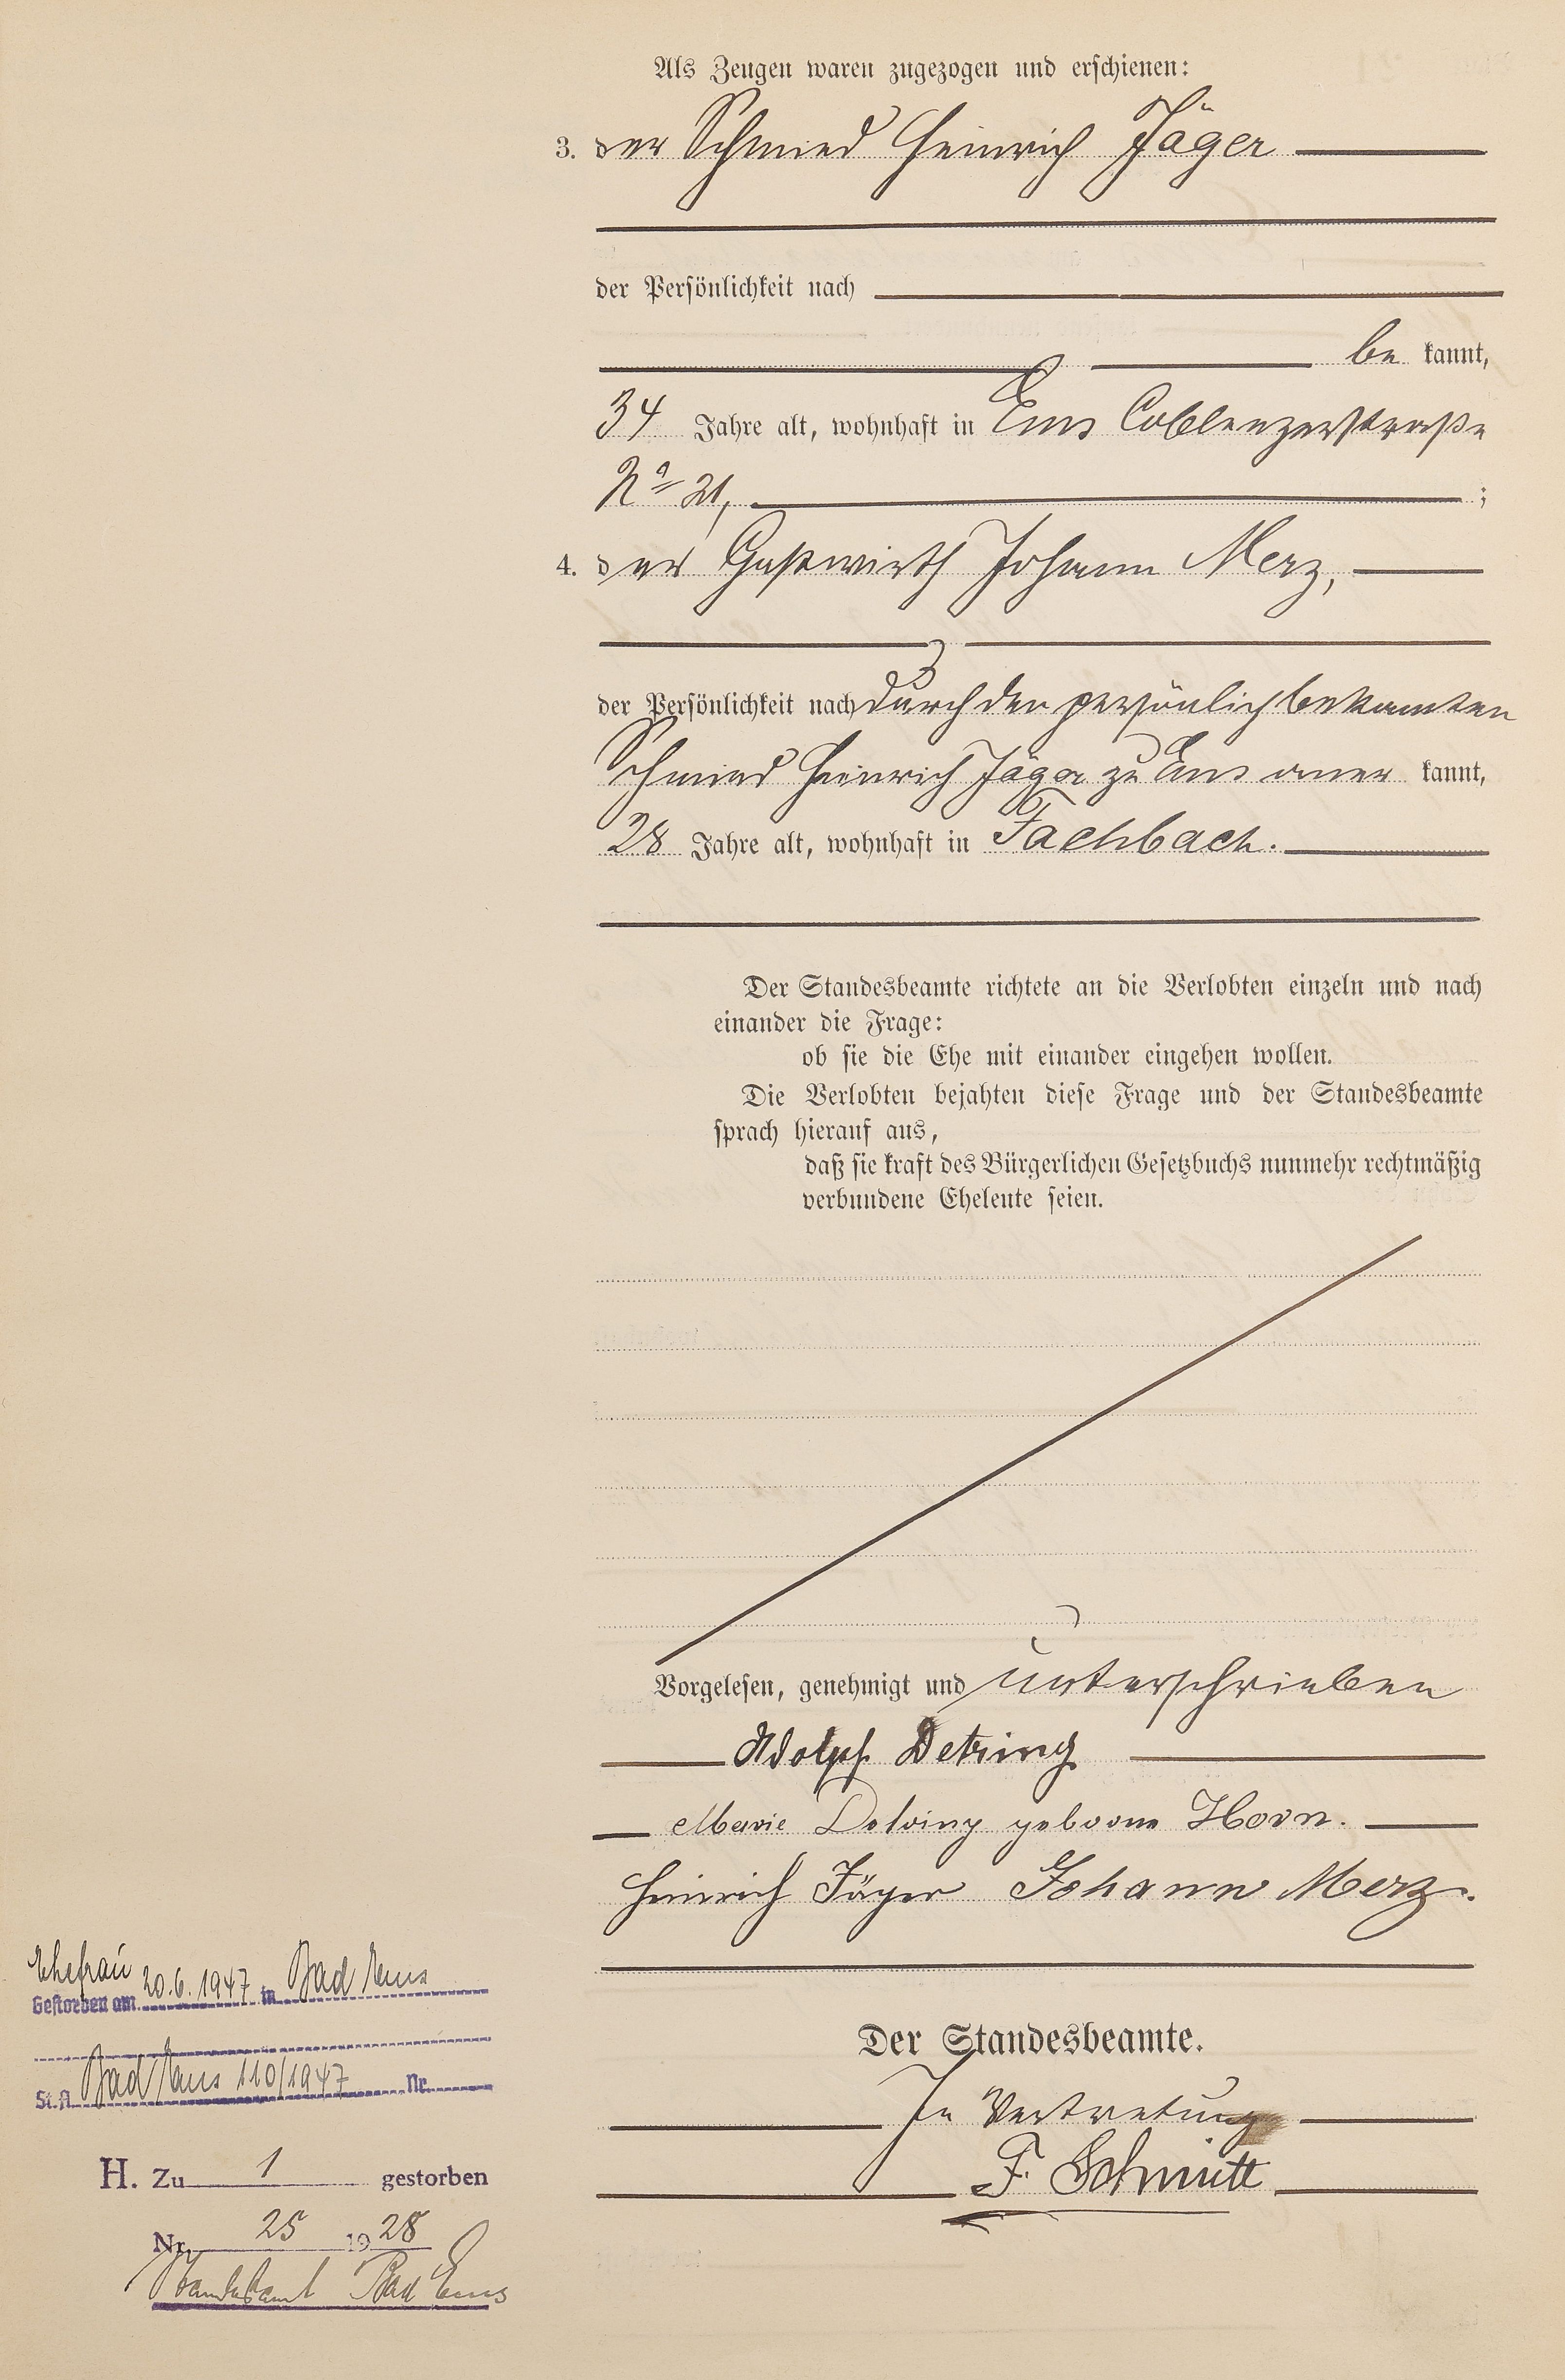 Als Zeugen waren zugezogen und erschienen:
3. der Schmied Heinrich Jäger
der Persönlichkeit nach
be kannt,
34 Jahre alt, wohnhaft in Ems Coblenzerstraße
No 21, ;
4. der Gastwirth Johann Merz,
der Persönlichkeit nach durch den persönlich bekannten
Schmied Heinrich Jäger zu Ems aner kannt,
28 Jahre alt, wohnhaft in Fachbach.
Der Standesbeamte richtete an die Verlobten einzeln und nach
einander die Frage:
ob sie die Ehe mit einander eingehen wollen.
Die Verlobten bejahten diese Frage und der Standesbeamte
sprach hierauf aus,
daß sie kraft des Bürgerlichen Gesetzbuchs nunmehr rechtmäßig
verbundene Eheleute seien.
Vorgelesen, genehmigt und unterschrieben
Adolph Detring
Marie Detring geborne Horn.
Heinrich Jäger Johann Merz.
Der Standesbeamte.
In Vertretung
F. Schmitt
Ehefrau
Gestorben am 20.6.1947 in Bad Ems
St.A. Bad Ems 110/1947 Nr.
H. Zu 1 gestorben
Nr. 25 1928
Standesamt Bad Ems